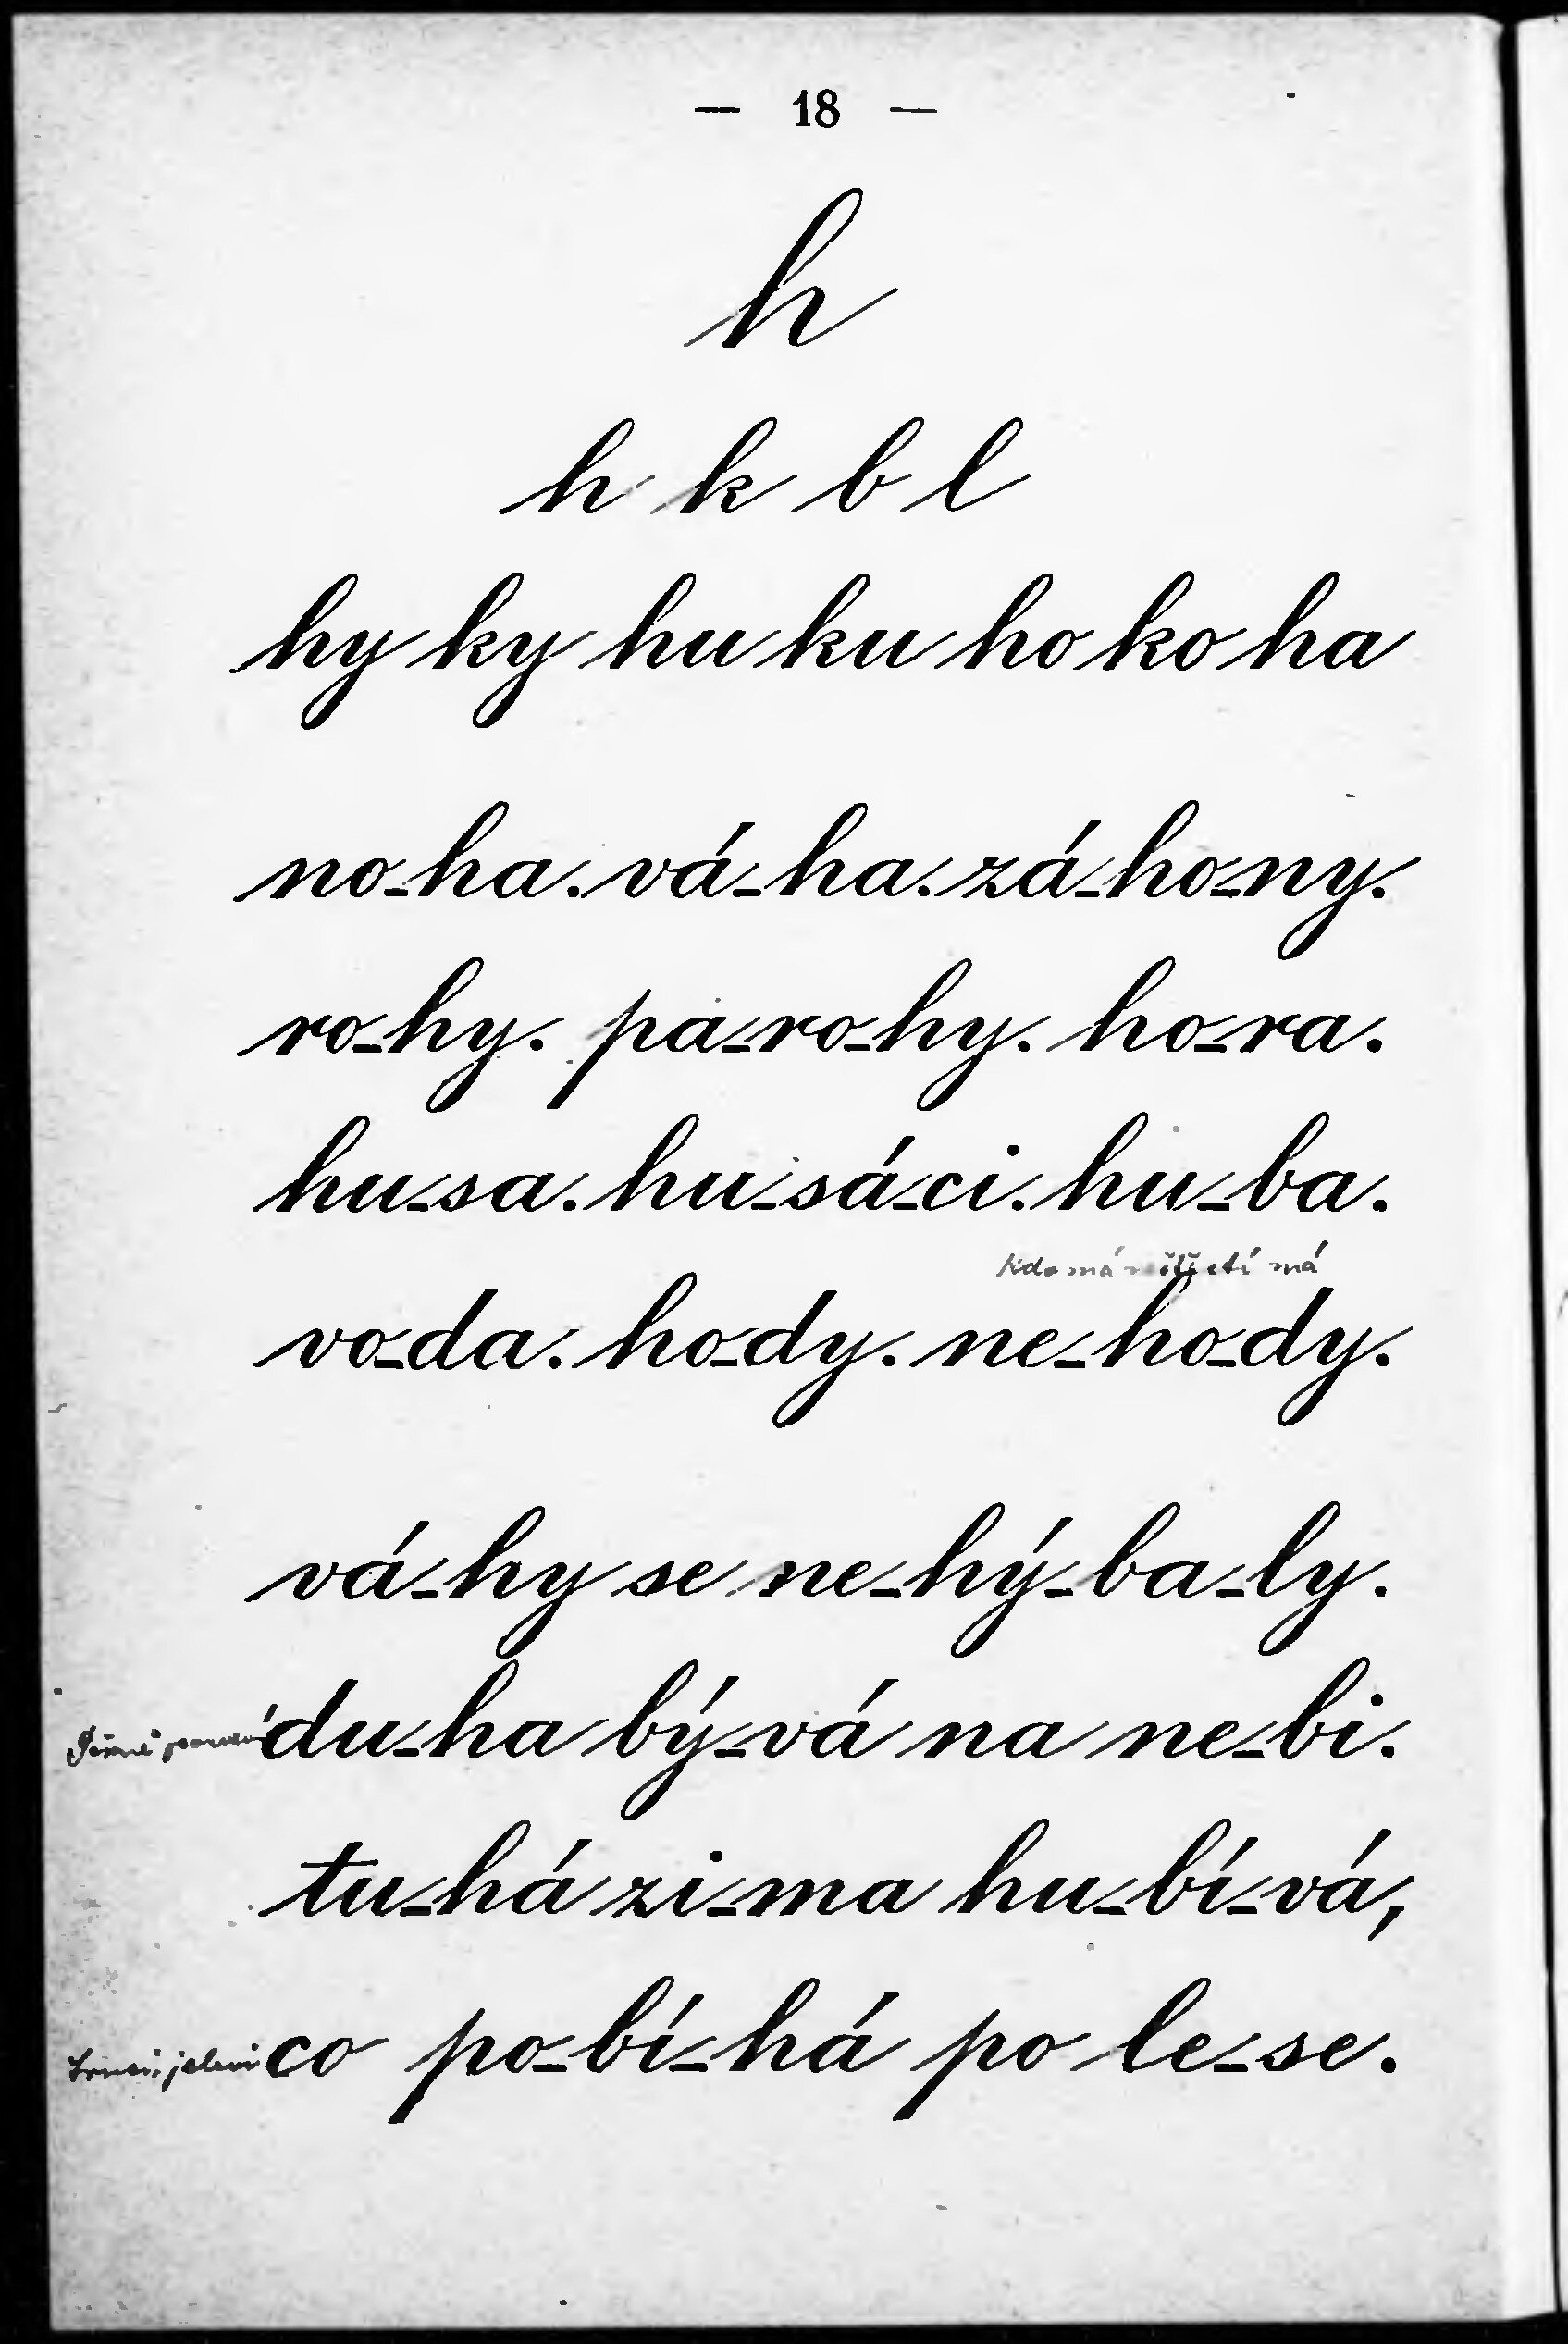 — 18 —
h
h k b l
hy ky hu ku ho ko ha
no-ha. vá-ha. zá-ho-ny.
ro-hy. pa-ro-hy. ho-ra.
hu-sa. hu-sá-ci. hu-ba.
má
vo-da. ho-dy. ne-ho-dy.
vá-hy se ne-hý-ba-ly.
du-ha bý-vá na ne-bi.
tu-há zi-ma hu-bí-vá,
co po-bí-há po le-se.